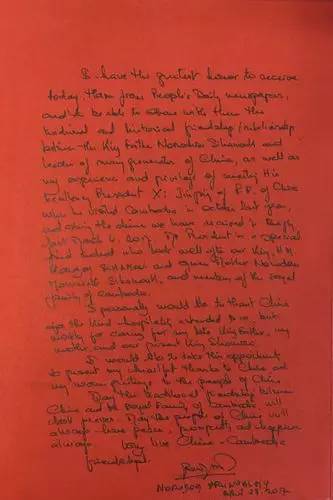 I have the greatest honor to receive
today, them from People's Daily newspaper,
and to be able to share with them the
traditional and historical friendship/relationship
between the King Father Norodom Sihanouk and
leader of many generation of China, as well as
my experience and privilege of meeting His
Excellency President Xi Jinping of P.R. of China
when he visited Cambodia in October last year,
and during the dinner we have received in Beijing,
last March 6, 2017. President is a special
kind who look well after our King, H.M.
Norodom Sihamoni and Queen Mother Norodom
Monineath Sihanouk, and members of the royal
family of Cambodia.
I personally would like to thank China
for the kind hospitality extended to us, but
mostly for caring for my late King Father, my
mother, and our present King Sihamoni.
I would like to take this opportunity
to present my utmost thanks to China and
my warm to the people of China
May the traditional friendship between
China and the Royal Family of Cambodia will
last forever. May the people of China will
always have peace, prosperity and happiness
always. Long live China - Cambodia
friendship!
NORODOM
2017